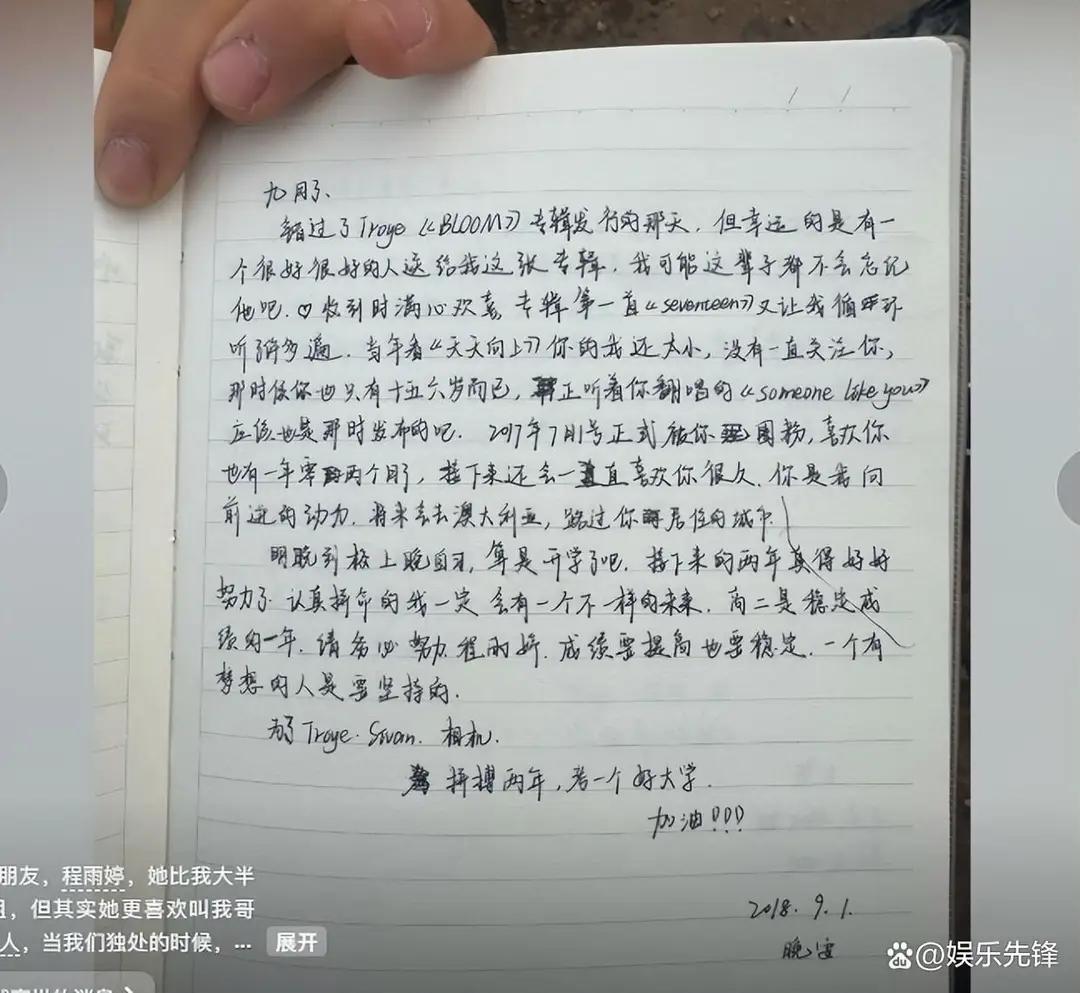 九月了、
错过了Troye《BLOOM》专辑发行的那天，但幸运的是有一
个很好很好的人送给我这张专辑，我可能这辈子都不会忘记
他吧.♡收到时满心欢喜，专辑第一首《seventeen》又让我循环
听了许多遍．当年看《天天向上》你的我还太小，没有一直关注你，
那时候你也只有十五六岁而已，正听着你翻唱的《someone like you》
应该也是那时发布的吧．2017年7月1号正式被你圈粉，喜欢你
也有一年零两个月了，接下来还会一直喜欢你很久．你是我向
前进的动力．将来会去澳大利亚，路过你居住的城市．
明晚到校上晚自习，算是开学了吧．接下来的两年真得好好
努力了．认真拼命的我一定会有一个不一样的未来．高二是稳定成
绩的一年．请务必努力．程雨婷．成绩要提高也要稳定．一个有
梦想的人是要坚持的．
为了Troye·Sivan．相机．
拼搏两年，考一个好大学．
加油!!!
2018.9.1.
晚安
朋友，程雨婷，她比我大半
姐，但其实她更喜欢叫我哥
人，当我们独处的时候，... 展开
@娱乐先锋